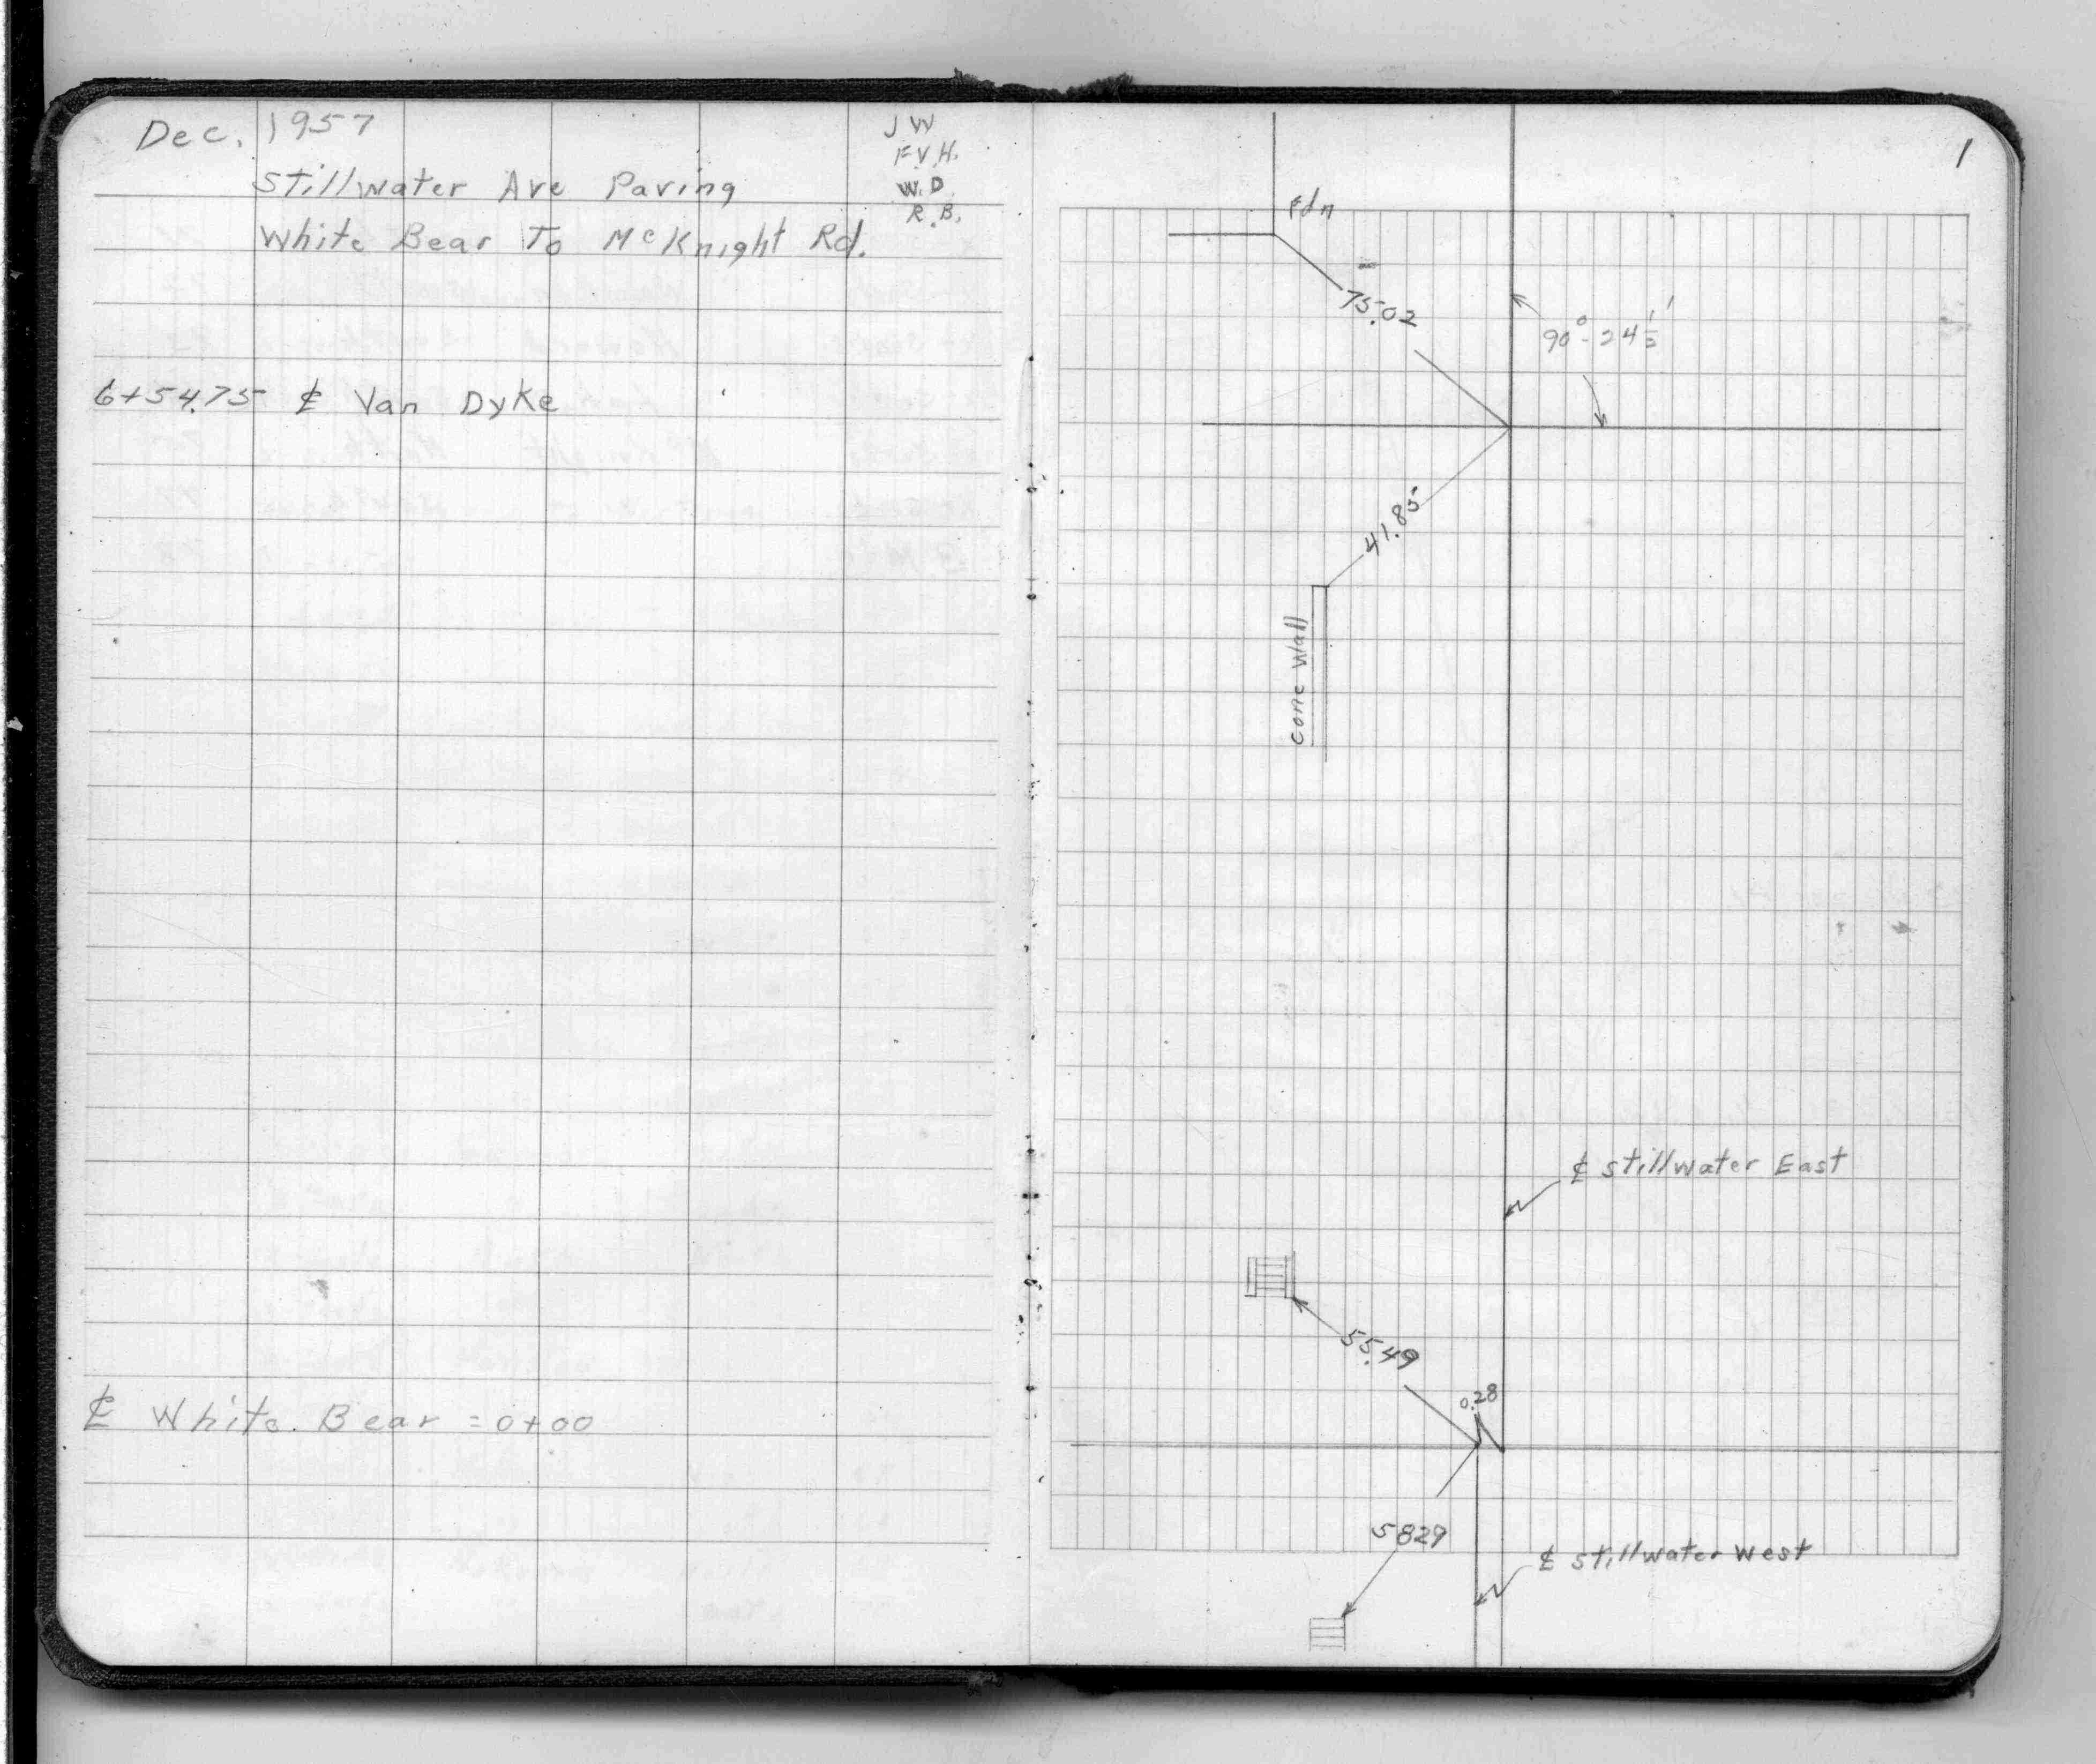 Dec. 1957
J W
F.V.H.
W.D.
R.B.
Stillwater Ave Paving
White Bear To McKnight Rd.
6+54.75 ℄ Van Dyke
℄ White Bear = 0+00
1
Fdn
75.02
90°-24½'
41.85
conc Wall
℄ stillwater East
55.49
0.28
5829
℄ stillwater west